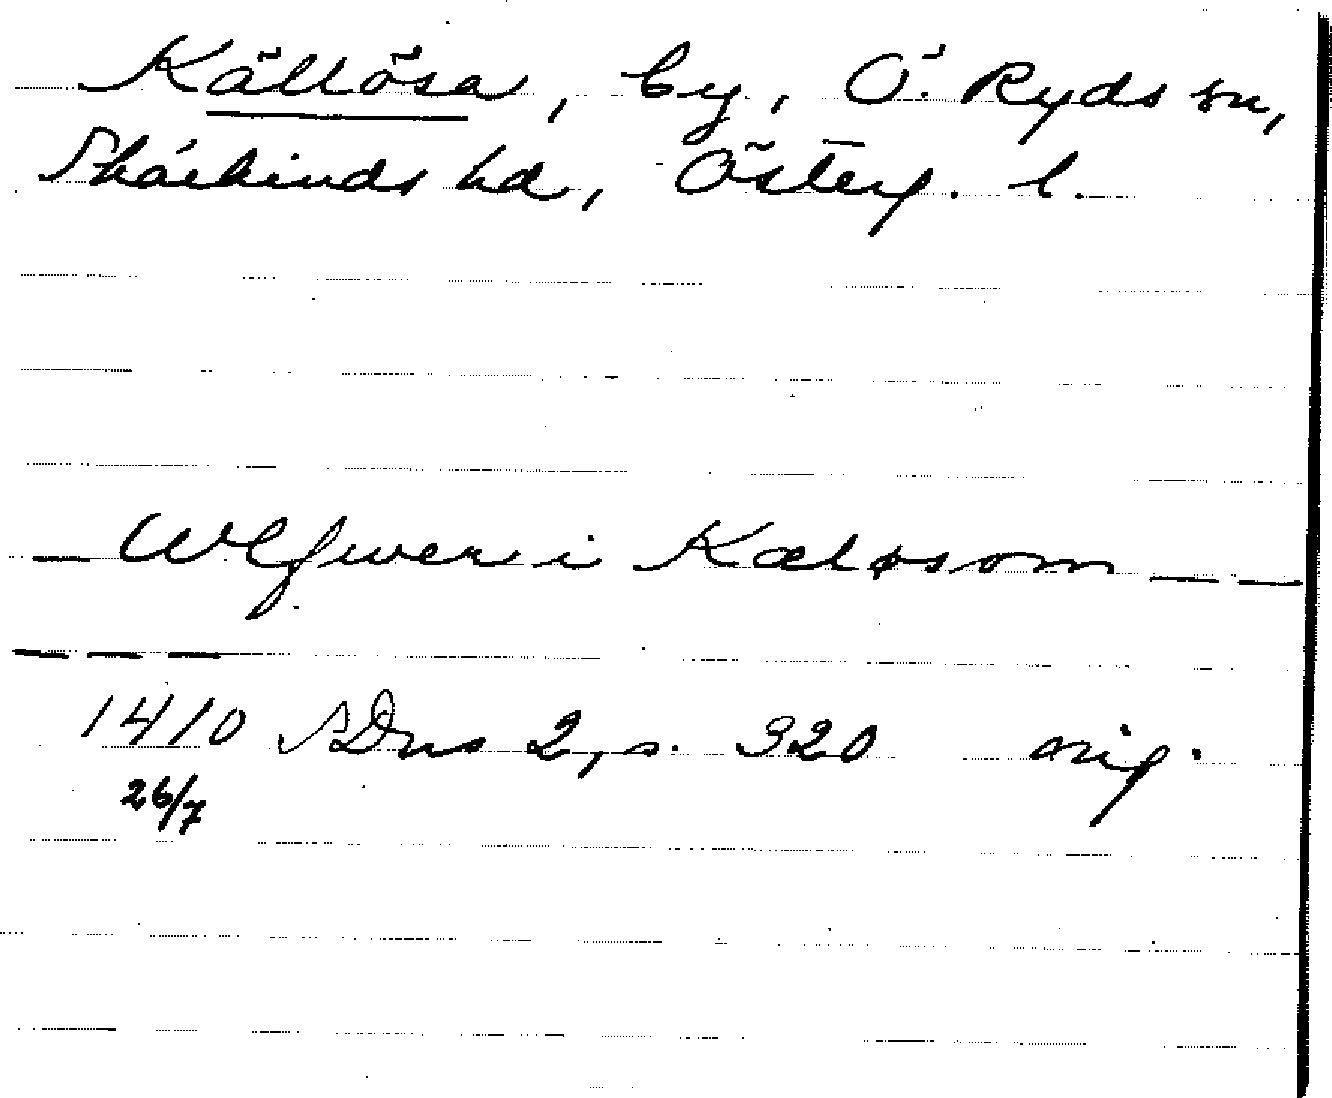 Källösa, by, Ö. Ryds sn,
Skärkinds hd, Österg. l.
— Wlfwer i Kæløsom — —
— — —
1410 SDns 2, s. 320 orig.
26/7